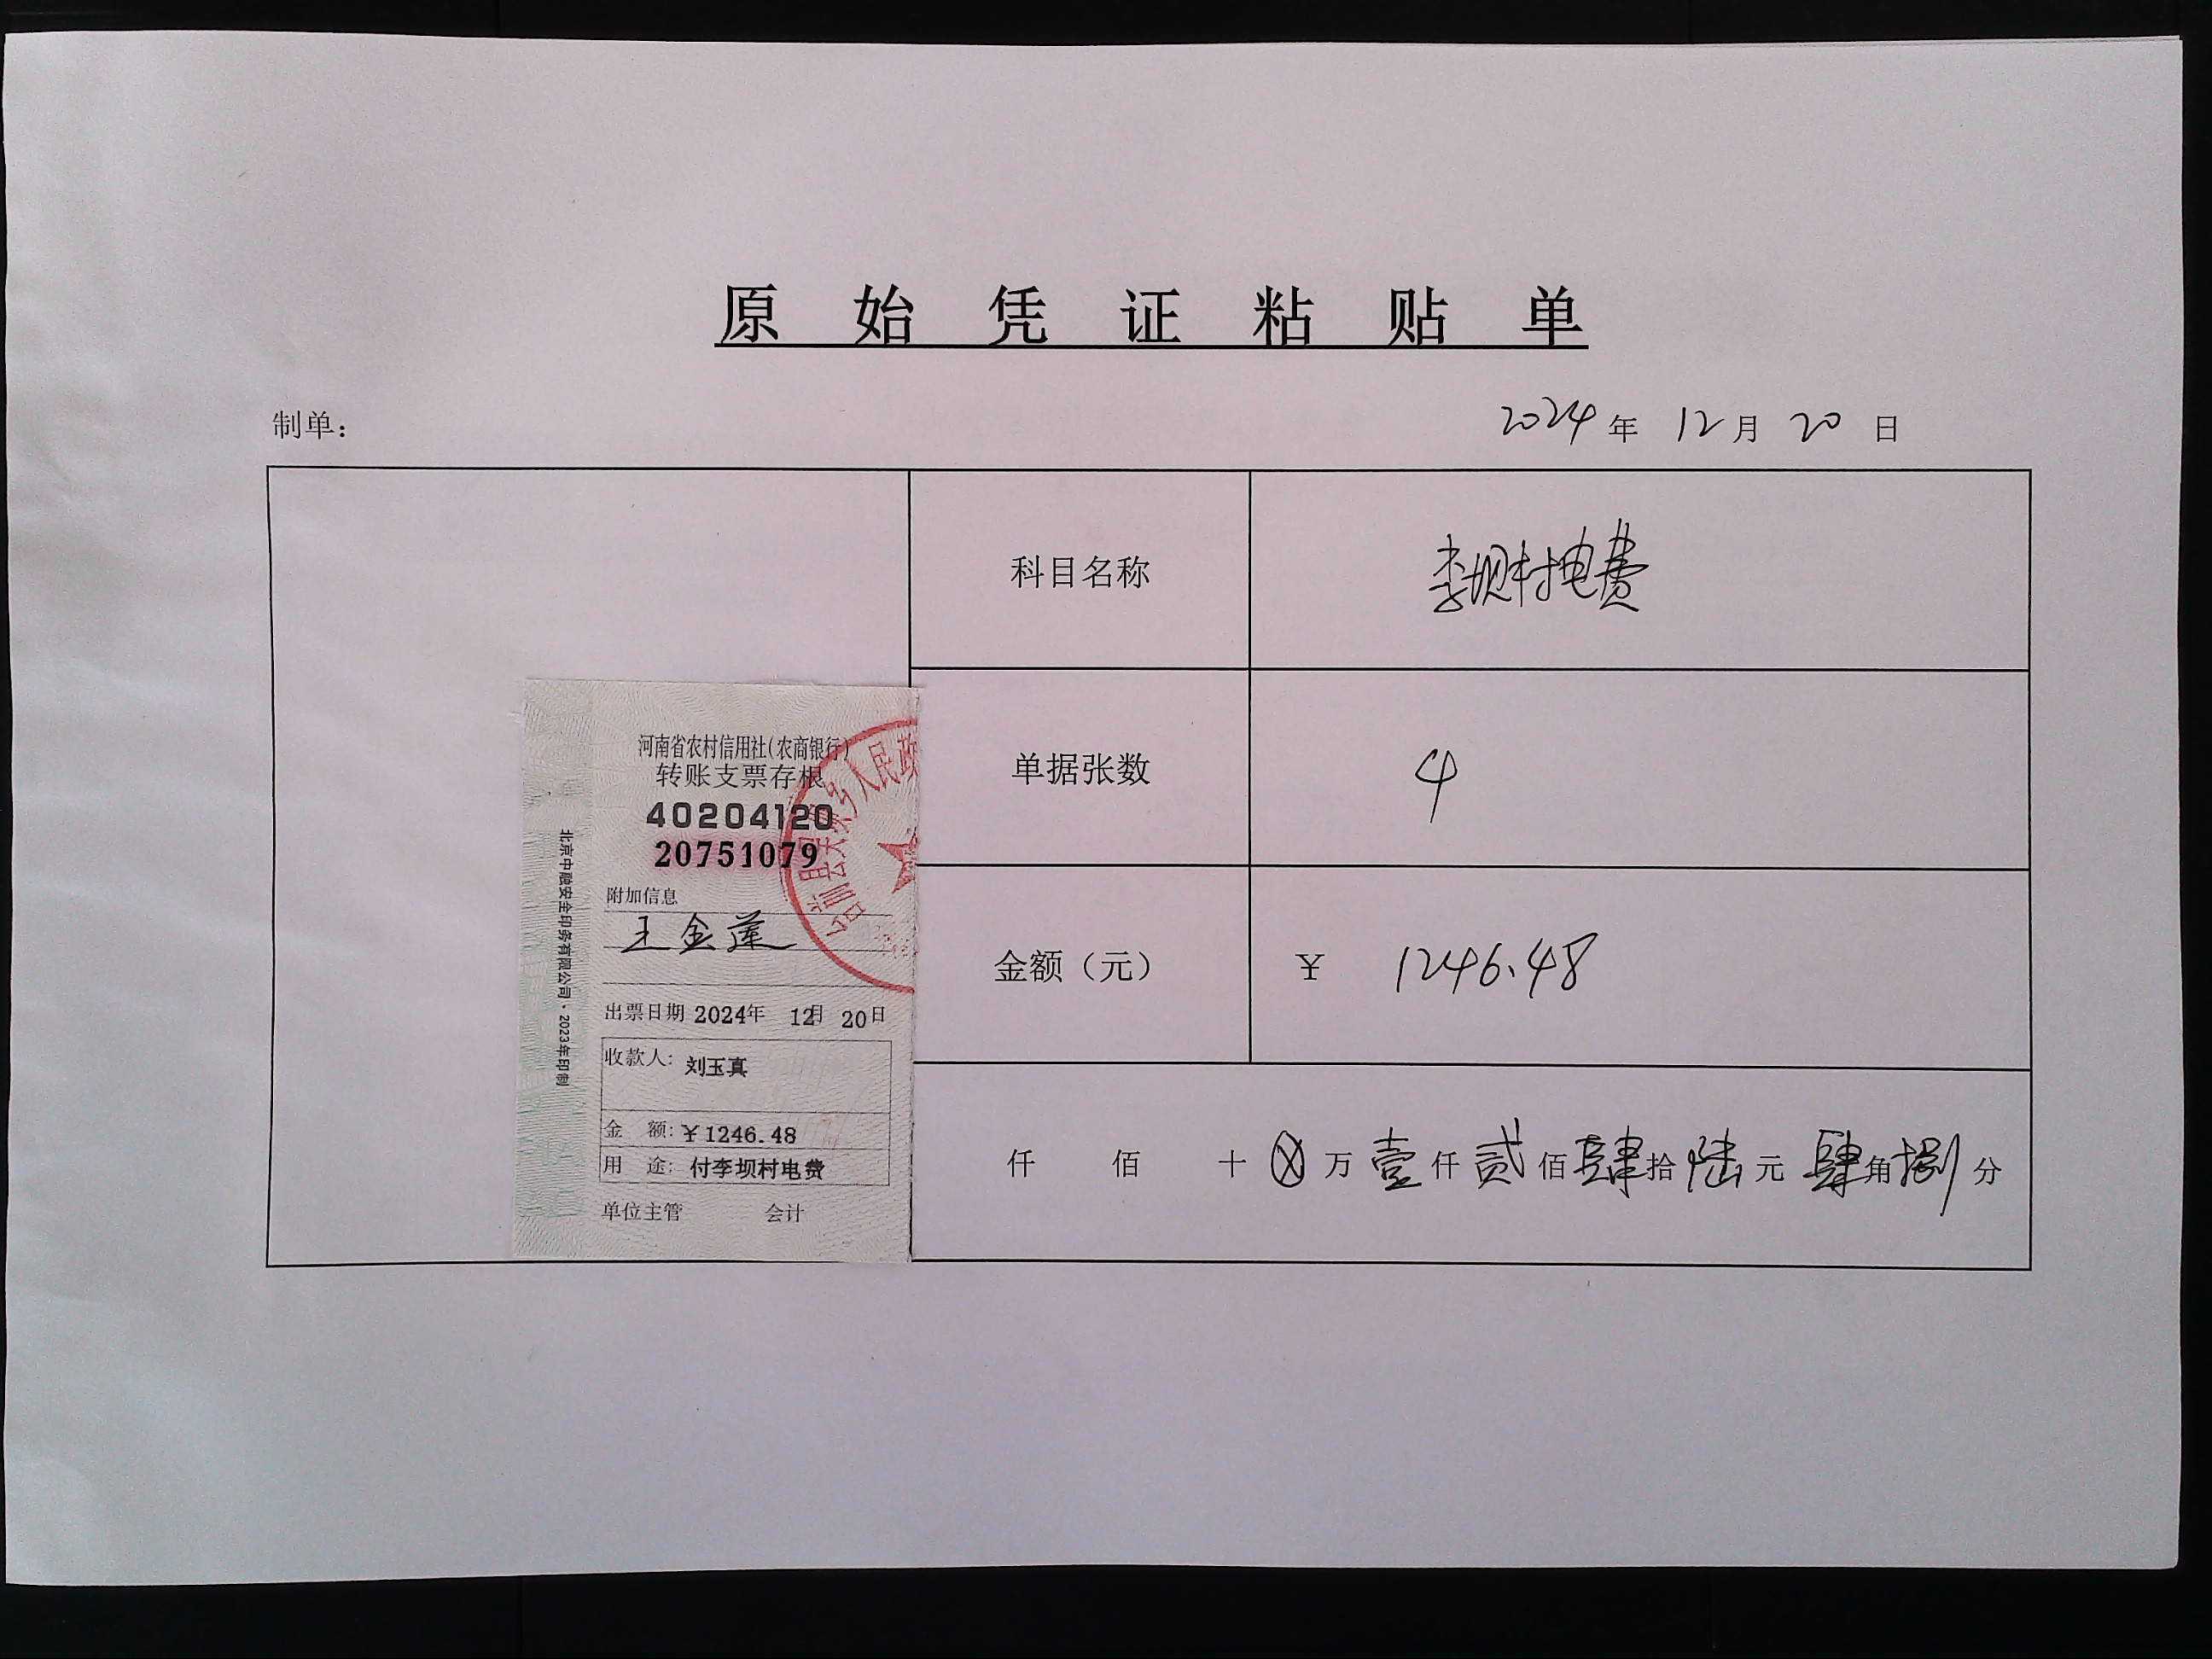 原始凭证粘贴单
制单：
2024年 12月 20日
科目名称
李坝村电费
单据张数
4
金额（元）
¥ 1246.48
仟 佰 十 ⊗ 万 壹仟贰佰肆拾陆元肆角捌分
河南省农村信用社(农商银行)
转账支票存根
40204120
20751079
附加信息
王金莲
出票日期 2024年 12月 20日
收款人: 刘玉真
金 额: ¥1246.48
用 途: 付李坝村电费
单位主管 会计
北京中融安全印务有限公司·2023年印制
乡人民政